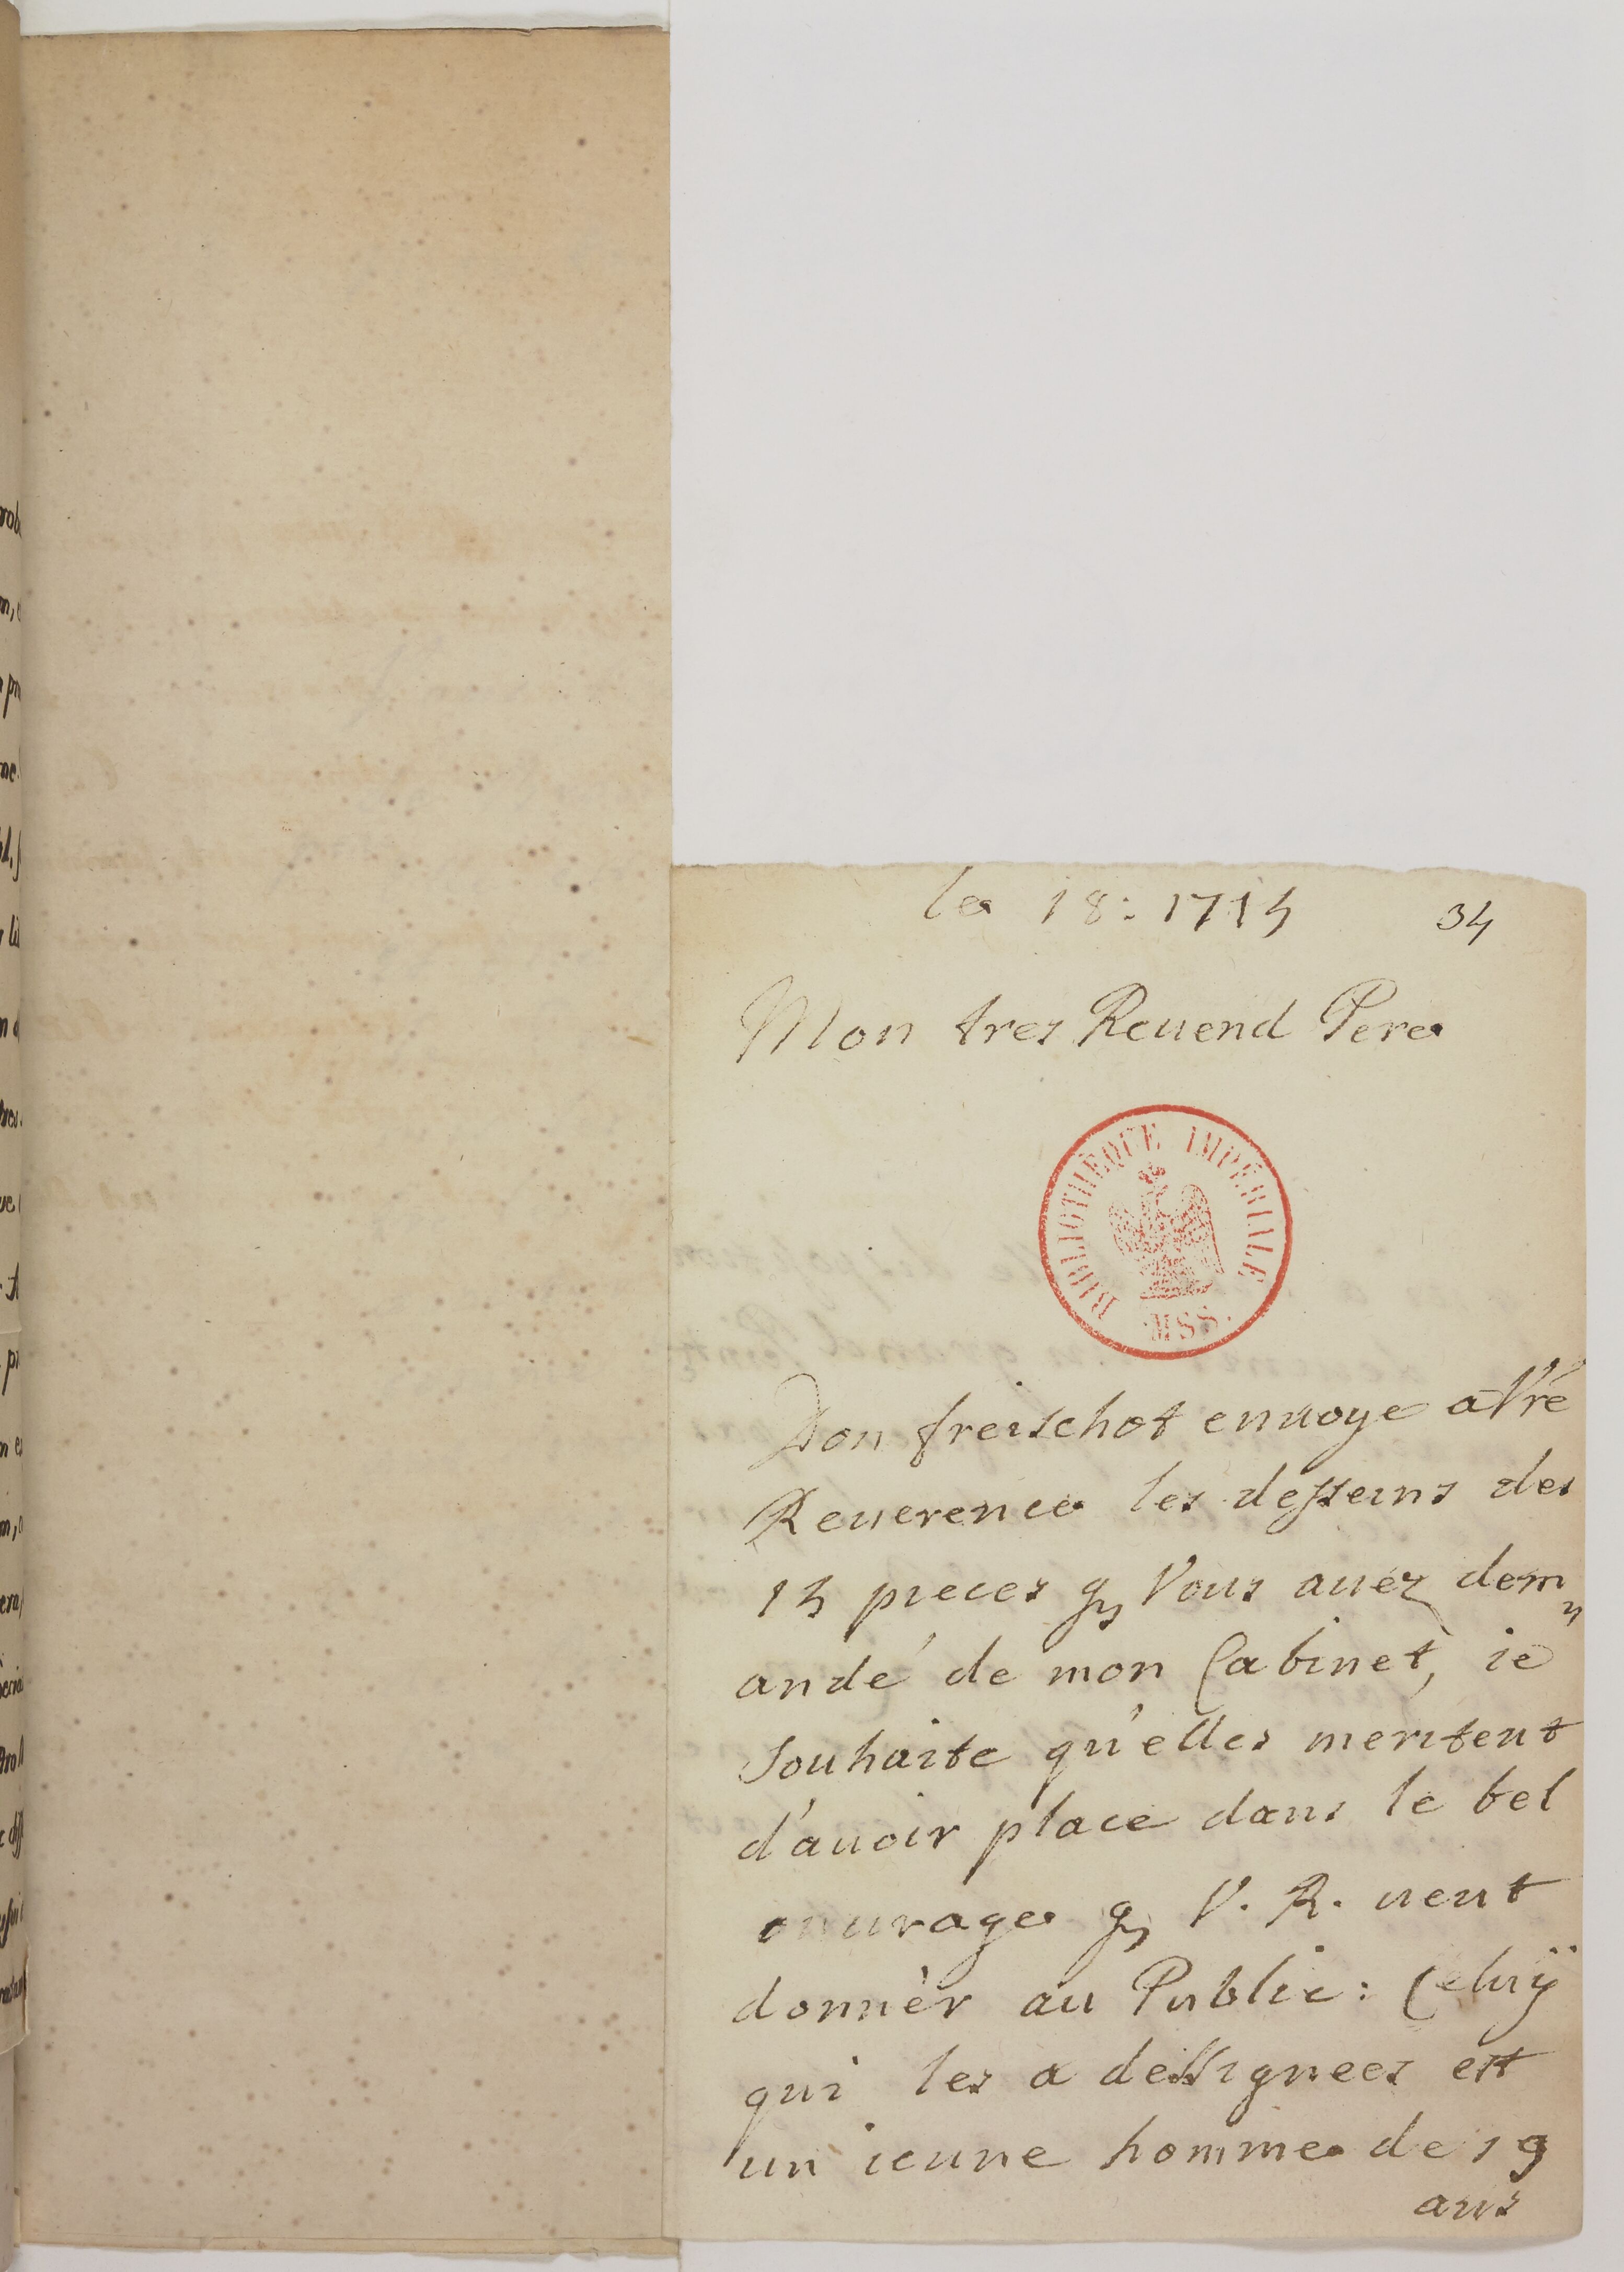 le 18: 1715
34
Mon tres Reuend Pere
BIBLIOTHÈQUE IMPÉRIALE
MSS.
Don freischot enuoye a Vrē
Reuerence les desseins des
15 pieces q Vous auez dem
andé de mon Cabinet, ie
souhaite qu'elles meritent
d'auoir place dans le bel
ouurage q V. R. ueut
donnèr au Public: Celuÿ
qui les a dessignees est
un ieune homme de 19
ans